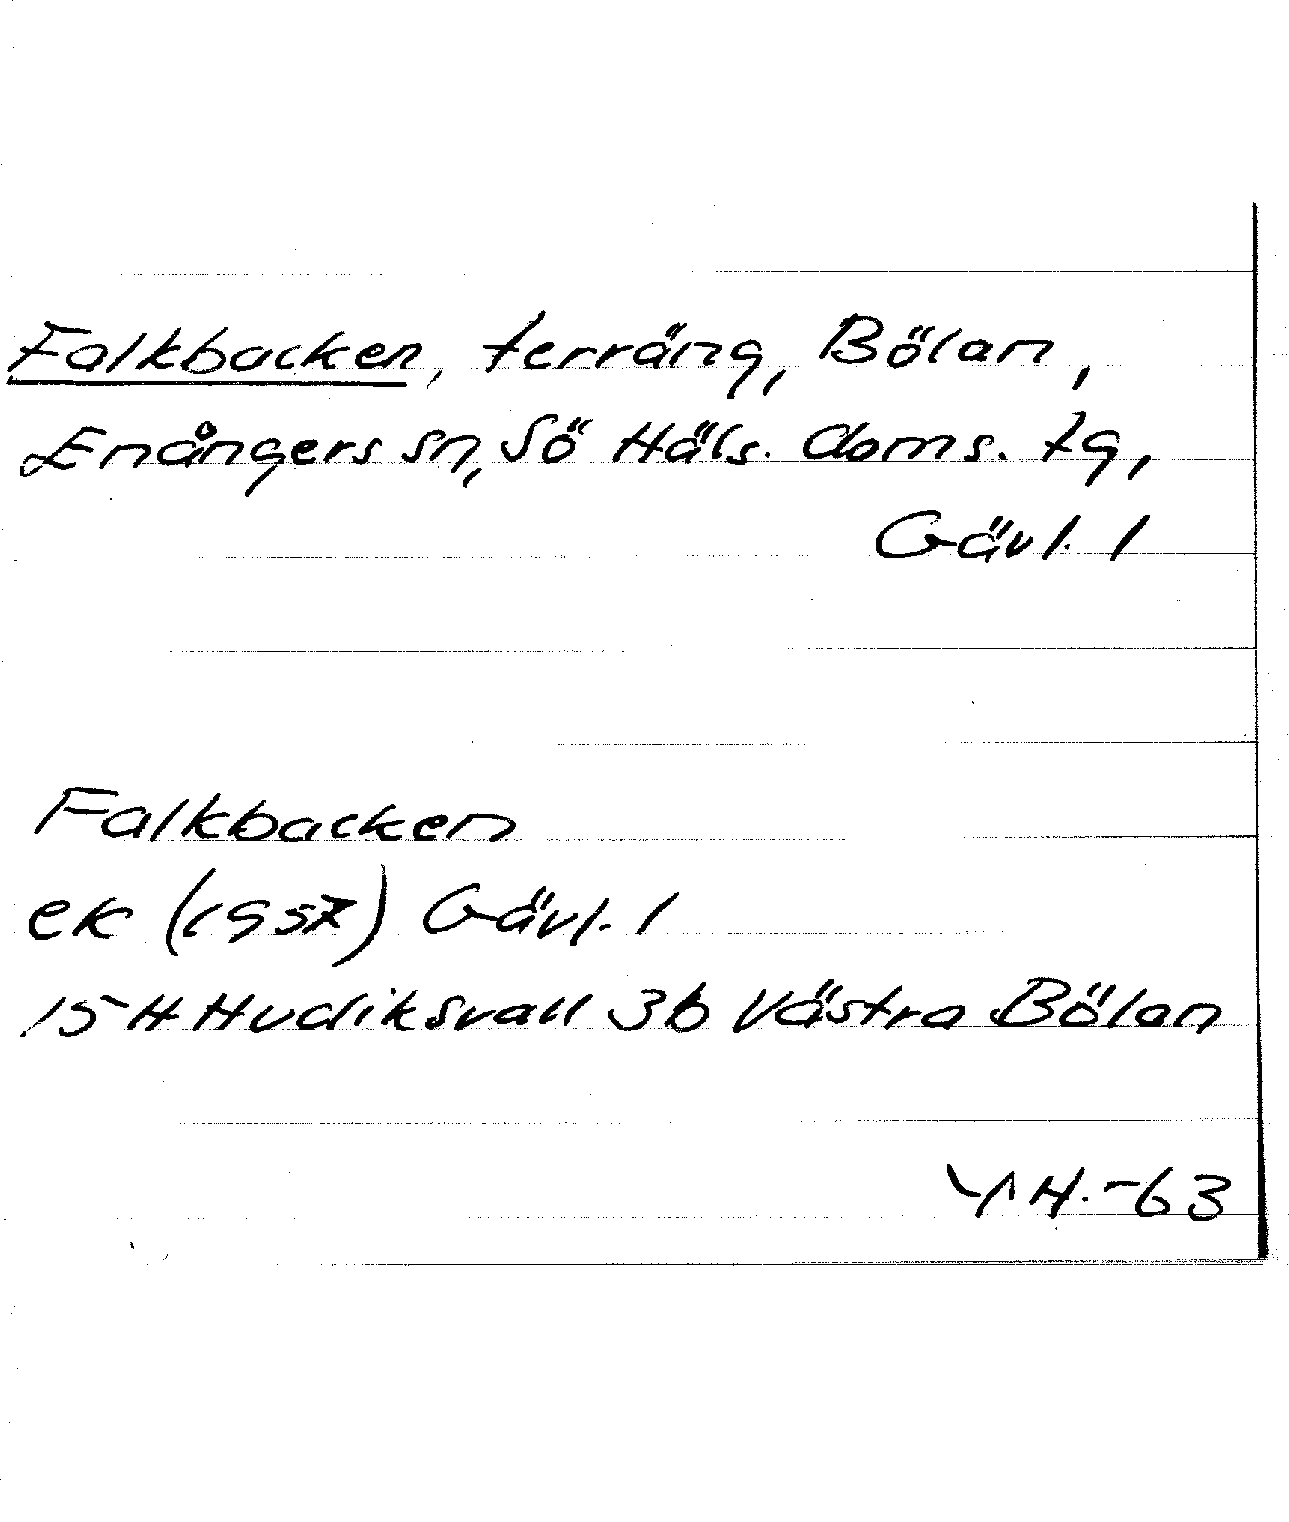 Falkbacken, terräng, Bölan,
Enångers sn, Sö Häls. doms. tg,
Gävl. l
Falkbacken
ek (1957) Gävl. l
15 H Hudiksvall 3b Västra Bölan
-63